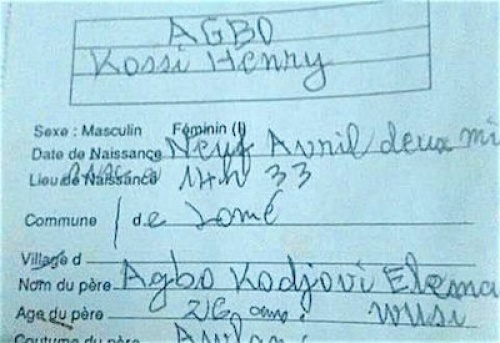 AGBO
Kossi Henry
Sexe : Masculin Féminin (I)
Date de Naissance Neuf Avril deux mi
Lieu de Naissance 14h 33
Commune de Lomé
Village d
Nom du père Agbo Kodjovi Elema
Age du père 26 ans.
Coutume du père